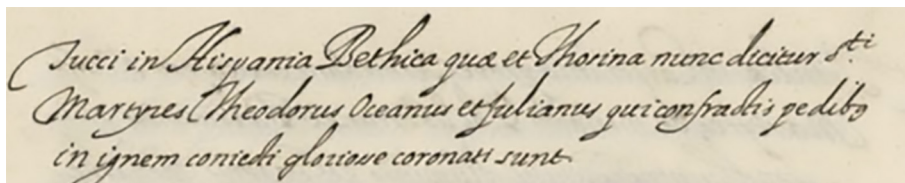 Tucci in Hispania Bethica quæ et Thorina nunc dicitur S.ti
Martyres Theodorus Oceanus et Julianus qui confractis pedib9
in ignem coniecti gloriose coronati sunt